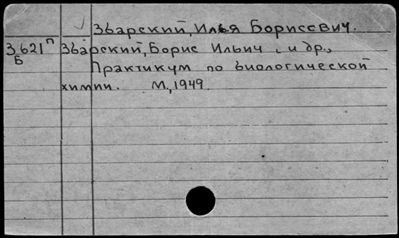 Збарский, Илья Борисович.
З 621 п Збарский, Борис Ильич, и др.,
Б Практикум по биологической
химии. М., 1949.